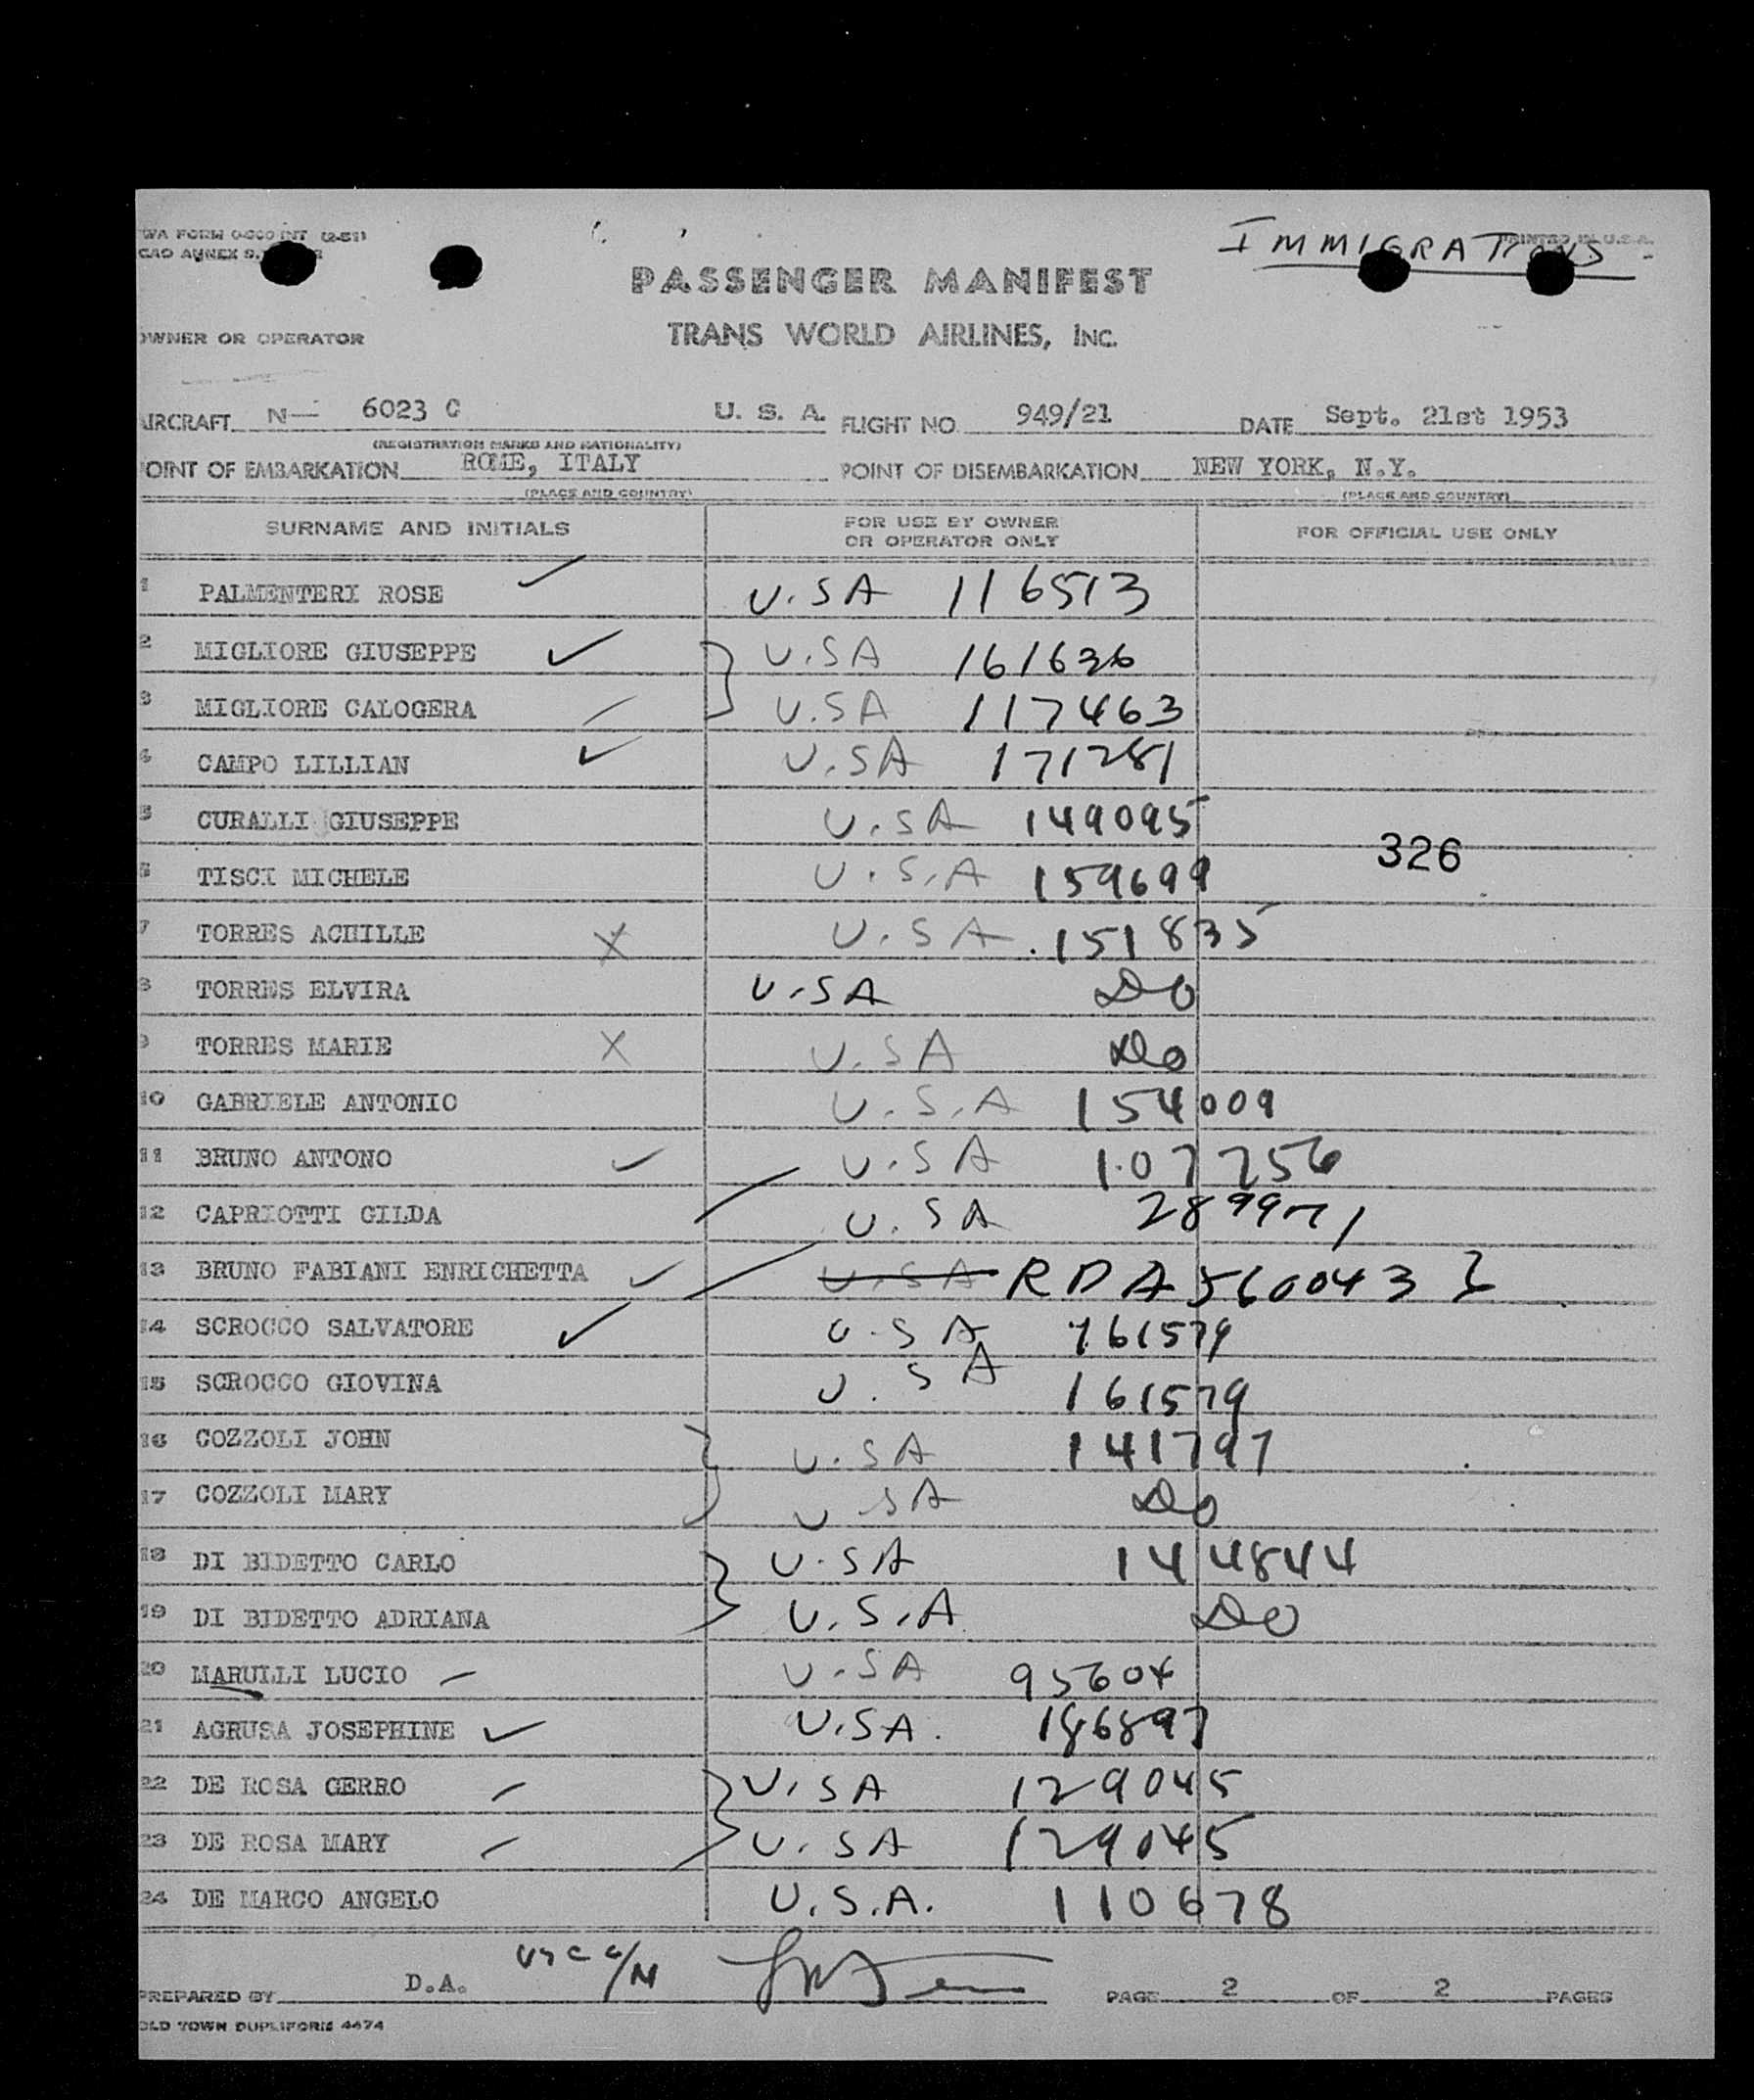 TWA FORM O-200 INT (2-51)
ICAO ANNEX 9,
IMMIGRATIONS
PRINTED IN U.S.A.
PASSENGER MANIFEST
OWNER OR OPERATOR
TRANS WORLD AIRLINES, INC.
AIRCRAFT N— 6023 C U. S. A. FLIGHT NO. 949/21 DATE Sept. 21st 1953
(REGISTRATION MARKS AND NATIONALITY)
POINT OF EMBARKATION ROME, ITALY POINT OF DISEMBARKATION NEW YORK, N.Y.
(PLACE AND COUNTRY) (PLACE AND COUNTRY)
SURNAME AND INITIALS FOR USE BY OWNER OR OPERATOR ONLY FOR OFFICIAL USE ONLY
1 PALMENTERI ROSE U.SA 116513
2 MIGLIORE GIUSEPPE U.SA 161636
3 MIGLIORE CALOGERA U.SA 117463
4 CAMPO LILLIAN U.SA 171281
5 CURALLI GIUSEPPE U.SA 149095
326
6 TISCI MICHELE U.S.A 159699
7 TORRES ACHILLE U.SA 151835
8 TORRES ELVIRA U.SA DO
9 TORRES MARIE U.SA Do
10 GABRIELE ANTONIO U.S.A 154009
11 BRUNO ANTONO U.SA 107256
12 CAPRIOTTI GILDA U.SA 289971
13 BRUNO FABIANI ENRICHETTA U.SA RDA 560043
14 SCROCCO SALVATORE U.SA 161579
15 SCROCCO GIOVINA U.SA 161579
16 COZZOLI JOHN U.SA 141797
17 COZZOLI MARY U SA Do
18 DI BIDETTO CARLO U.SA 144844
19 DI BIDETTO ADRIANA U.S.A DO
20 MARULLI LUCIO U.SA 95604
21 AGRUSA JOSEPHINE U.SA. 186897
22 DE ROSA GERRO U.SA 129045
23 DE ROSA MARY U.SA 129045
24 DE MARCO ANGELO U.S.A. 110678
PREPARED BY D.A. PAGE 2 OF 2 PAGES
OLD TOWN DUPLIFORM 4474